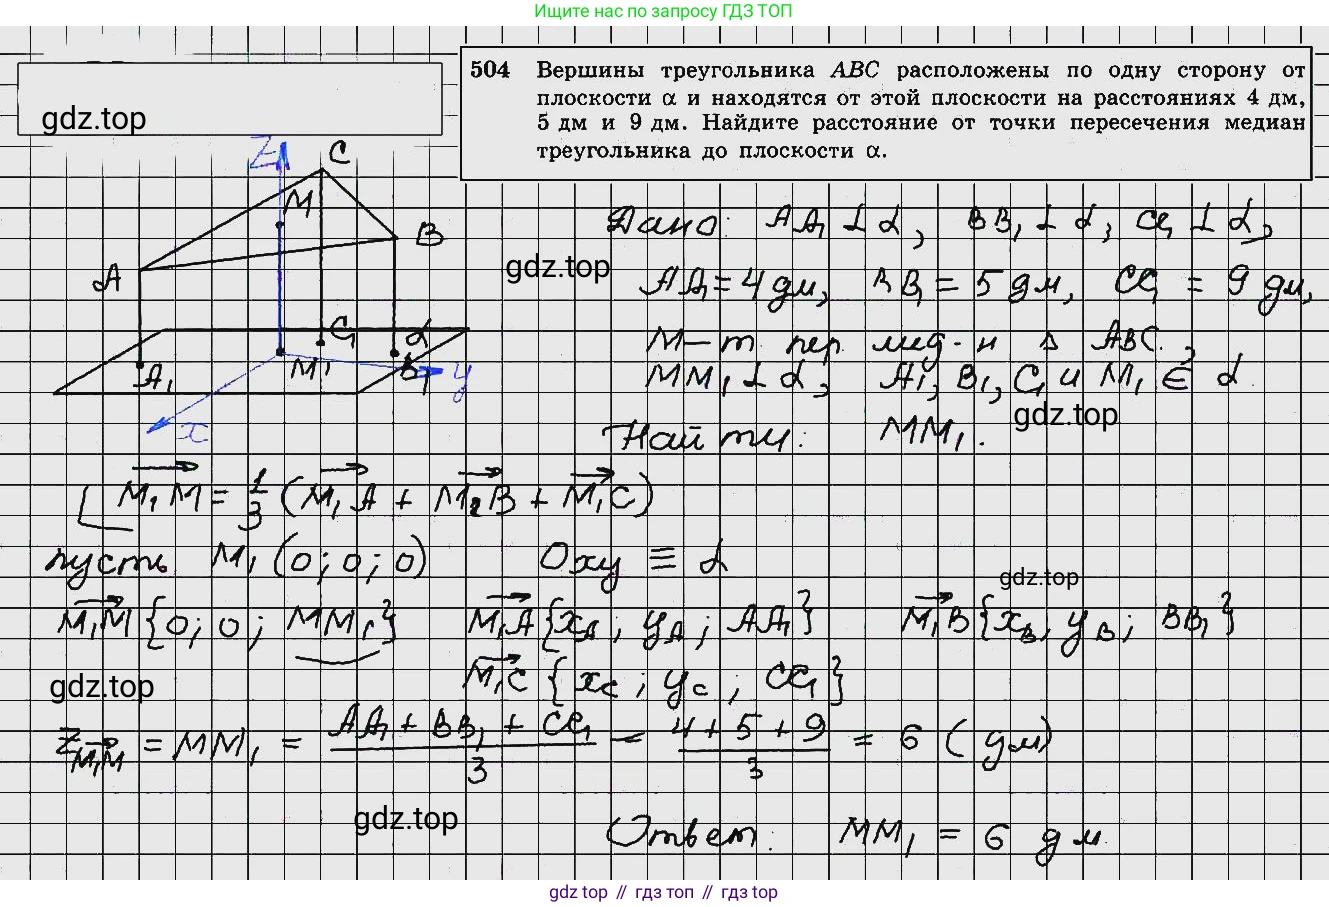 Ищите нас по запросу ГДЗ ТОП
gdz.top
504 Вершины треугольника ABC расположены по одну сторону от
плоскости α и находятся от этой плоскости на расстояниях 4 дм,
5 дм и 9 дм. Найдите расстояние от точки пересечения медиан
треугольника до плоскости α.
Z
C
M
B
A
C₁
α
A₁
M₁
B₁
y
x
Дано: AA₁ ⊥ α, BB₁ ⊥ α, CC₁ ⊥ α,
gdz.top
AA₁ = 4 дм, BB₁ = 5 дм, CC₁ = 9 дм,
M – т. пер. мед-н Δ ABC,
MM₁ ⊥ α, A₁, B₁, C₁ и M₁ ∈ α
gdz.top
Найти: MM₁.
M₁M = 1/3 (M₁A + M₁B + M₁C)
пусть M₁ (0; 0; 0) Oxy ≡ α
gdz.top
M₁M {0; 0; MM₁} M₁A {xA; yA; AA₁} M₁B {xB; yB; BB₁}
gdz.top
M₁C {xC; yC; CC₁}
zM₁M = MM₁ = (AA₁ + BB₁ + CC₁)/3 = (4 + 5 + 9)/3 = 6 (дм)
gdz.top
Ответ: MM₁ = 6 дм
gdz top // гдз топ // gdz top